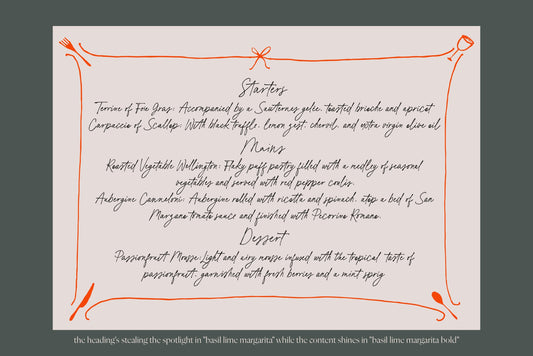 Starters
Terrine of Foie Gras: Accompanied by a Sauternes gelee, toasted brioche and apricot
Carpaccio of Scallop: With black truffle, lemon zest, chervil, and extra virgin olive oil
Mains
Roasted Vegetable Wellington: Flaky puff pastry filled with a medley of seasonal
vegetables and served with red pepper coulis.
Aubergine Cannelloni: Aubergine rolled with ricotta and spinach, atop a bed of San
Marzano tomato sauce and finished with Pecorino Romano.
Dessert
Passionfruit Mousse: Light and airy mousse infused with the tropical taste of
passionfruit, garnished with fresh berries and a mint sprig
the heading's stealing the spotlight in "basil lime margarita" while the content shines in "basil lime margarita bold"